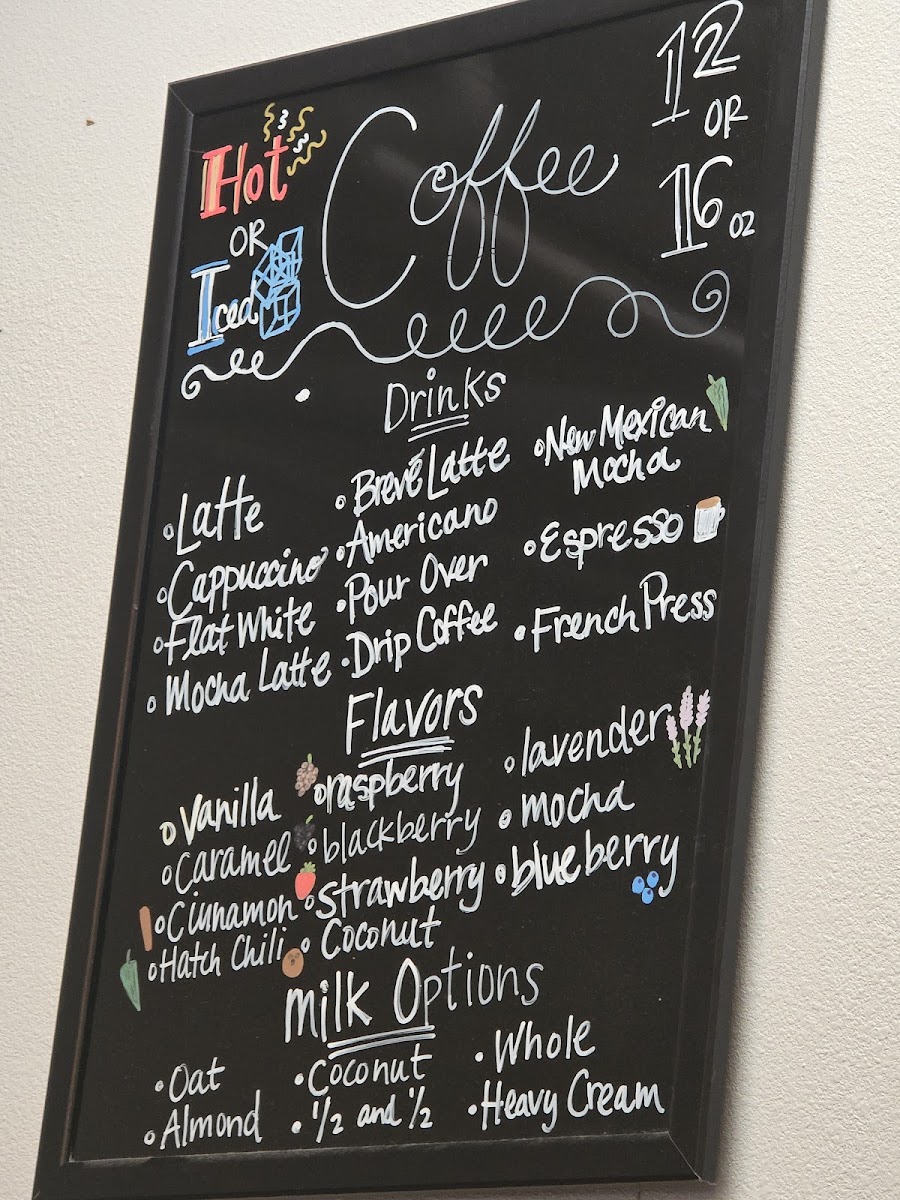 Hot
OR
Iced
Coffee
12
OR
16 oz
Drinks
Latte
Cappuccino
Flat White
Mocha Latte
Brevé Latte
Americano
Pour Over
Drip Coffee
New Mexican
Mocha
Espresso
French Press
Flavors
Vanilla
Caramel
Cinnamon
Hatch Chili
raspberry
blackberry
strawberry
Coconut
lavender
mocha
blueberry
Milk Options
Oat
Almond
Coconut
1/2 and 1/2
Whole
Heavy Cream